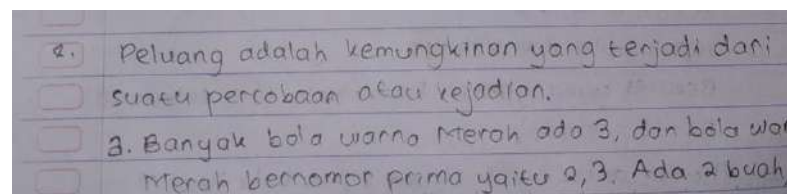 2. Peluang adalah kemungkinan yang terjadi dari
suatu percobaan atau kejadian.
3. Banyak bola warna Merah ada 3, dan bola wa
Merah bernomor prima yaitu 2, 3. Ada 2 buah